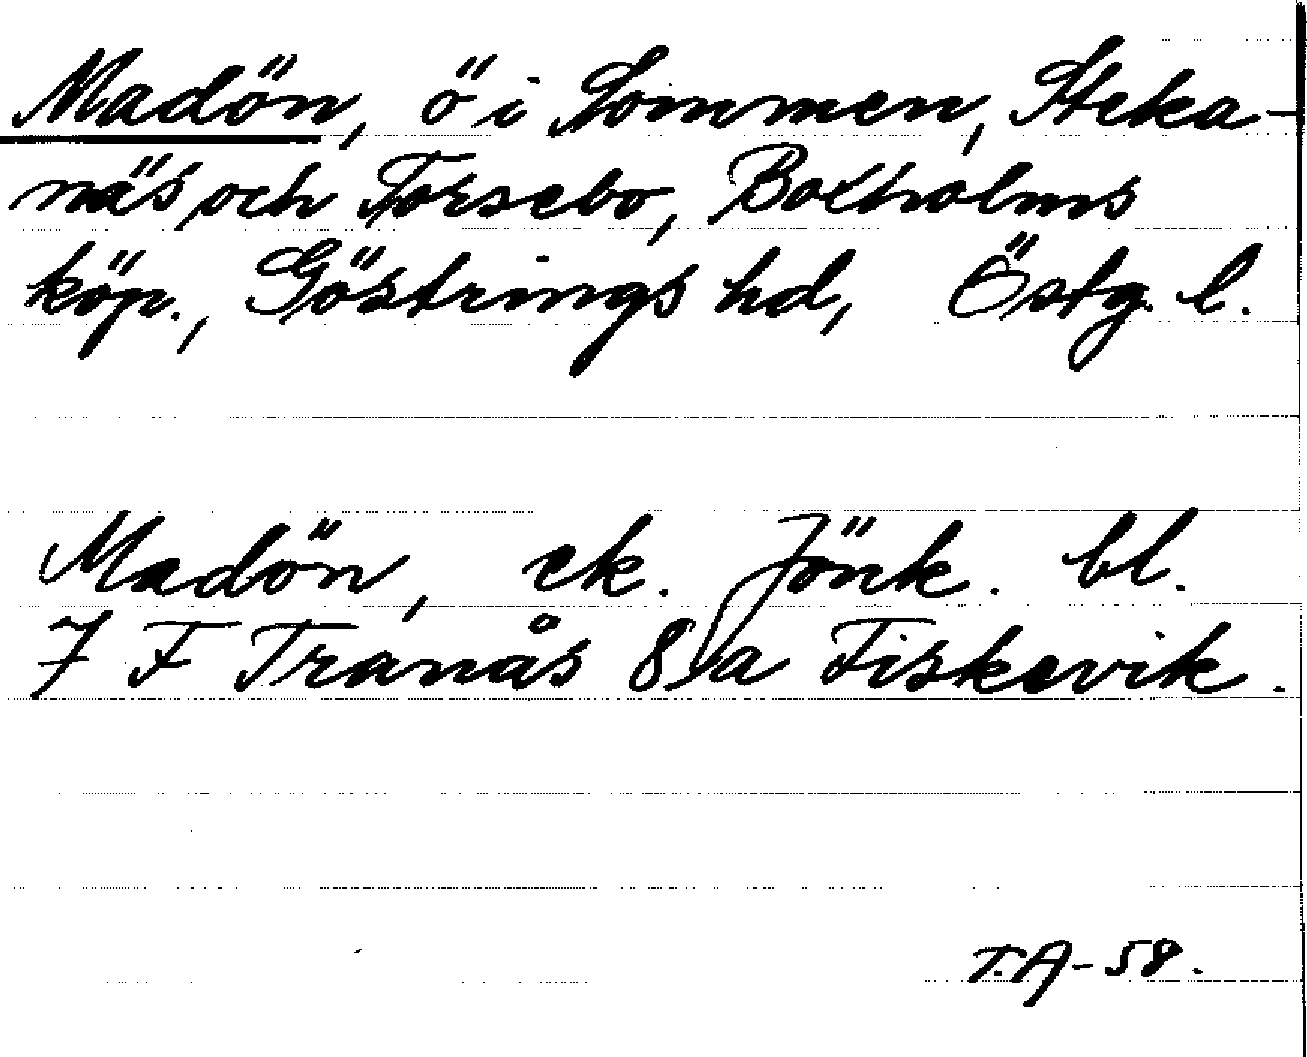 Madön, ö i Sommen, Steka-
näs och Torsebo, Boxholms
köp., Göstrings hd, Östg. l.
Madön, ek. Jönk. bl.
7 F Tranås 8 a Fiskevik.
T.A-58.